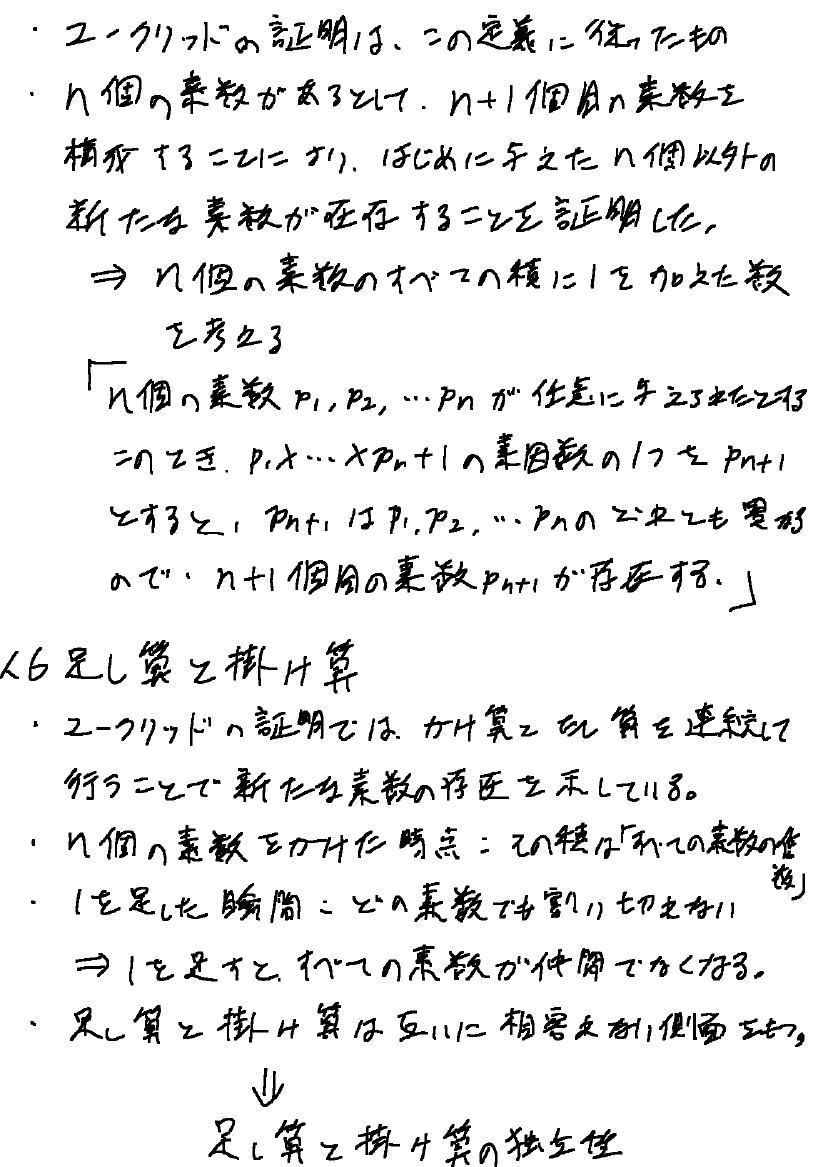 ・ユークリッドの証明は、この定義に従ったもの
・n個の素数があるとして、n+1個目の素数を
構成することにより、はじめに与えたn個以外の
新たな素数が存在することを証明した。
⇒ n個の素数のすべての積に1を加えた数
を考える
「n個の素数 p1, p2, …pn が任意に与えられたとする
このとき、p1×…×pn+1の素因数の1つを pn+1
とすると、pn+1 は p1, p2, …pnのどれとも異なる
ので、n+1個目の素数pn+1が存在する。」
1.6 足し算と掛け算
・ユークリッドの証明では、かけ算とたし算を連続して
行うことで新たな素数の存在を示している。
・n個の素数をかけた時点：その積は「すべての素数の倍
数」
・1を足した瞬間：どの素数でも割り切れない
⇒1を足すと、すべての素数が仲間でなくなる。
・足し算と掛け算は互いに相容れない側面をもつ。
⇓
足し算と掛け算の独立性